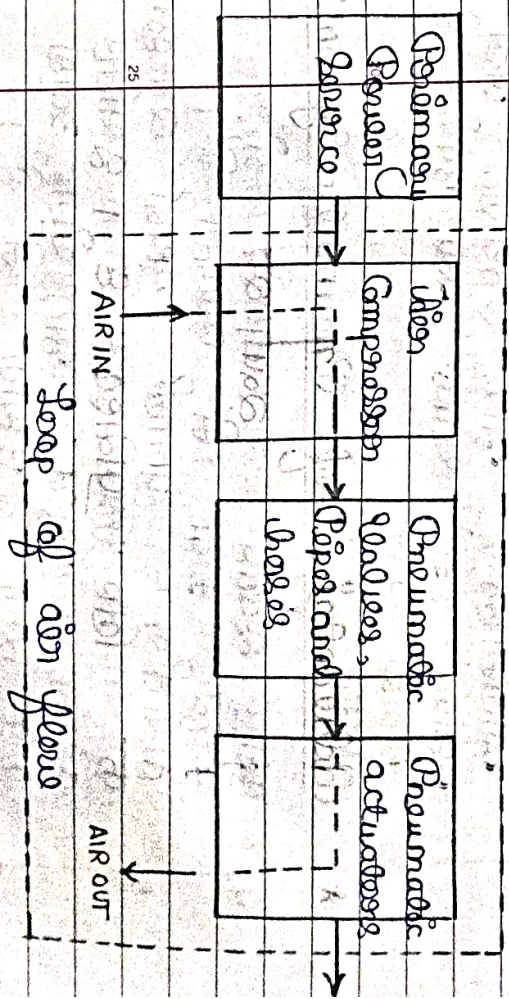 Primary
Power
Source
Air
Compressor
Pneumatic
Valves,
Pipes and
hoses
Pneumatic
actuators
AIR IN
AIR OUT
Loop of air flow
25